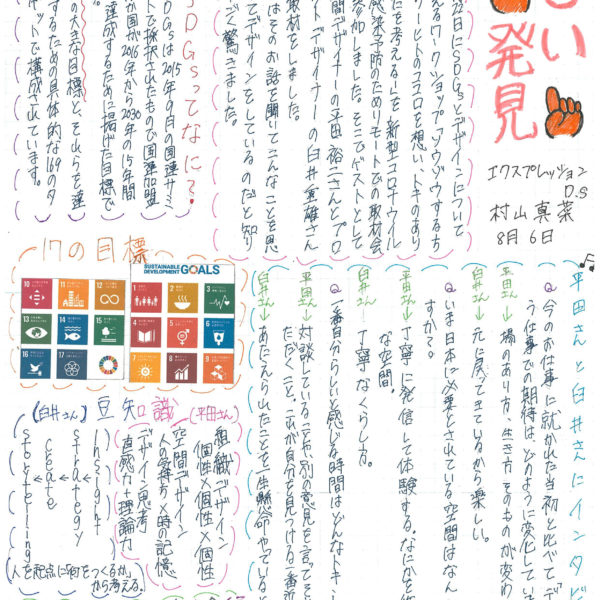 しい
発見
エクスプレッション
D.S
村山真菜
8月6日
22日にSDGsとデザインについて
えるワークショップ「ソウゾウするち
ーヒトのココロを想い、トキのあり
を考える」を新型コロナウイル
感染予防のためリモートでの取材会
参加しました。そこでゲストとして
間デザイナーの平田裕二さんとプロ
ットデザイナーの臼井重雄さん
取材をしました。
はそのお話を聞いてこんなことを思
てデザインをしているのだと知り
ごく驚きました。
SDGsってなに？
DGsは2015年9月の国連サミ
トで採択されたもので国連加盟
か国が2016年から2030年の15年間
達成するために掲げた目標で
の大きな目標と、それらを達
するための具体的な169のタ
ットで構成されています。
平田さんと臼井さんにインタビ
Q 今のお仕事に就かれた当初と比べてデ
う仕事での期待は、どのように変化してい
平田さん→ 場のあり方、生き方そのものが変わ
臼井さん→ 元に戻ってきているから楽しい。
Q いま日本に必要とされている空間はなん
すか？
平田さん→ 丁寧に発信して体験する。なにかを
な空間。
臼井さん→ 丁寧なくらし方。
Q 一番自分らしいと感じる時間はどんなトキ
平田さん→ 対談していることや、別の意見を言って
ただくこと。これが自分を見つける一番
臼井さん→ あたえられたことを一生懸命やっていると
17の目標
SUSTAINABLE
DEVELOPMENT GOALS
10
11
12
1
2
3
13
14
15
4
5
6
16
17
7
8
9
豆知識
(平田さん)
組織デザイン
個性×個性×個性
空間デザイン
人の気持ち×時の記憶
デザイン思考
直感力+理論力
(臼井さん)
Insight
↓
strategy
↓
create
↓
storytelling
人を起点に何をつくるか
から考える。